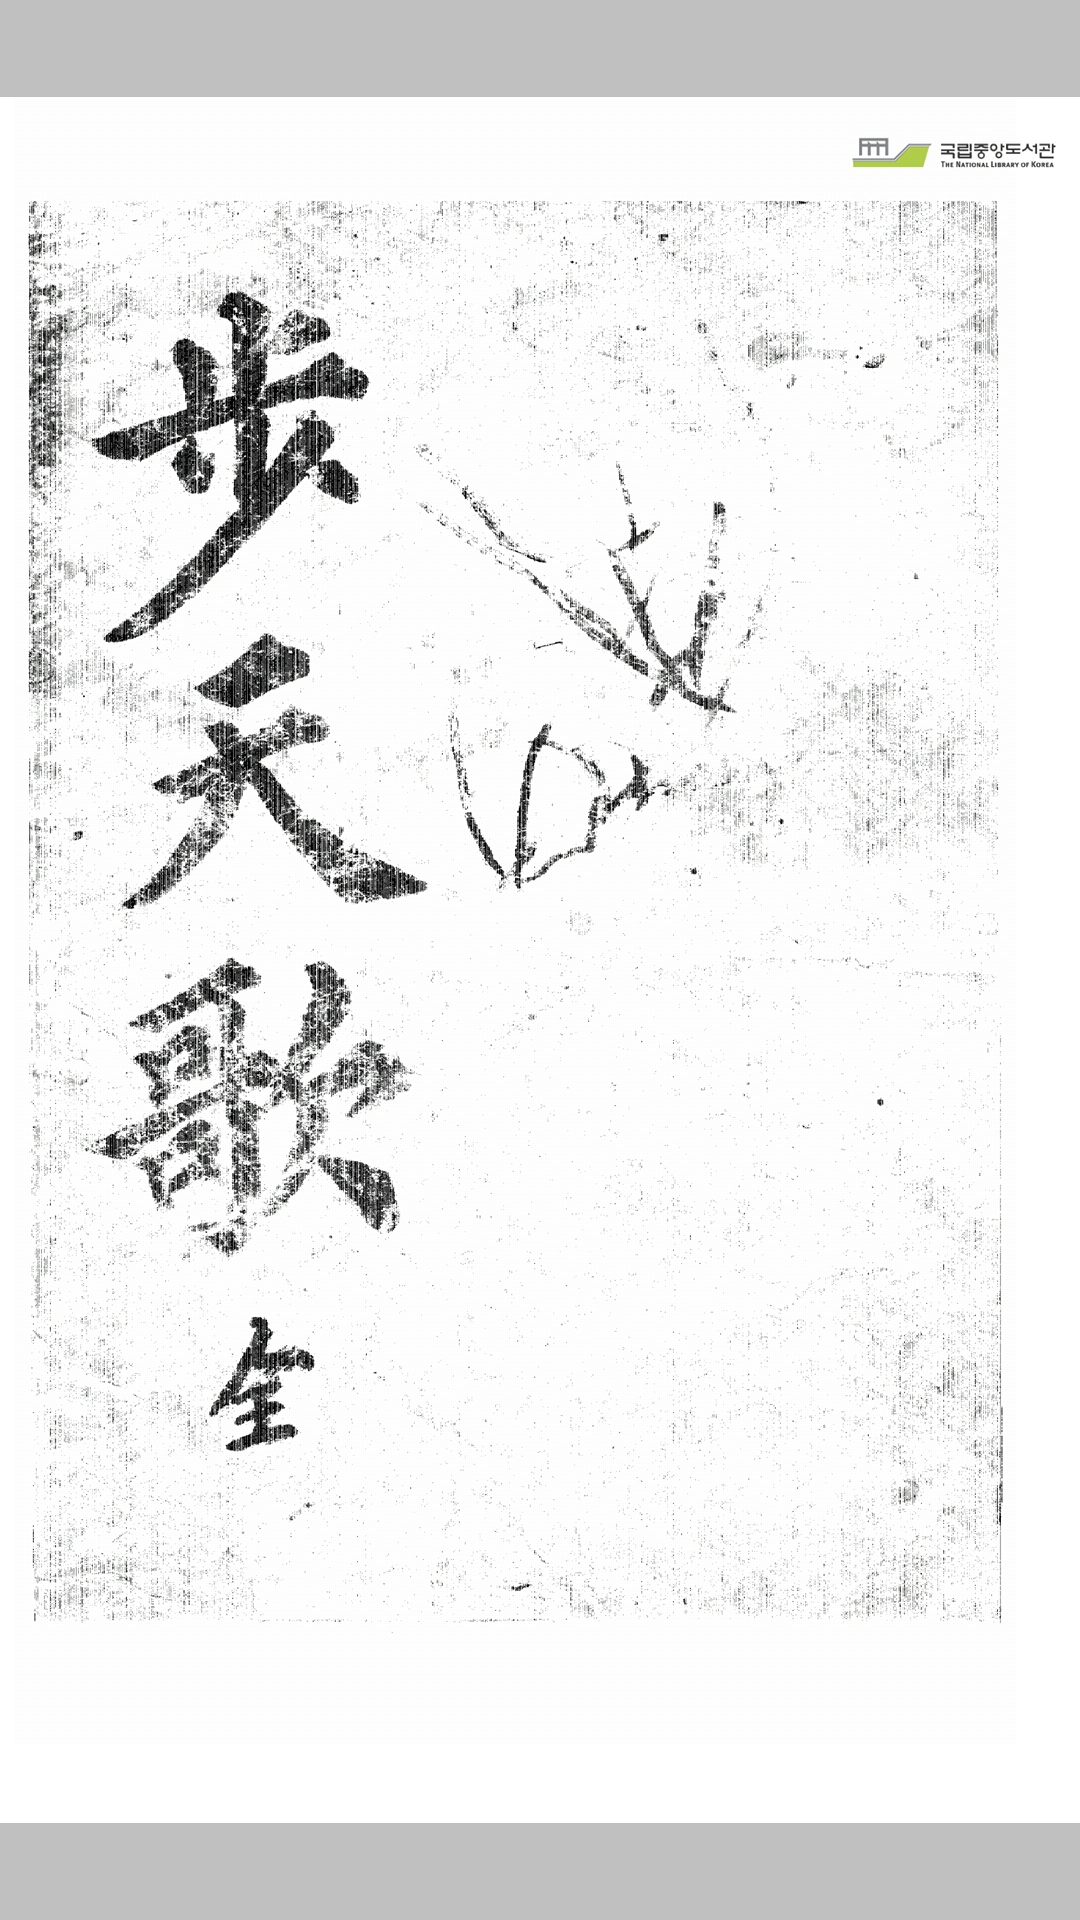 국립중앙도서관
THE NATIONAL LIBRARY OF KOREA
步天歌 全